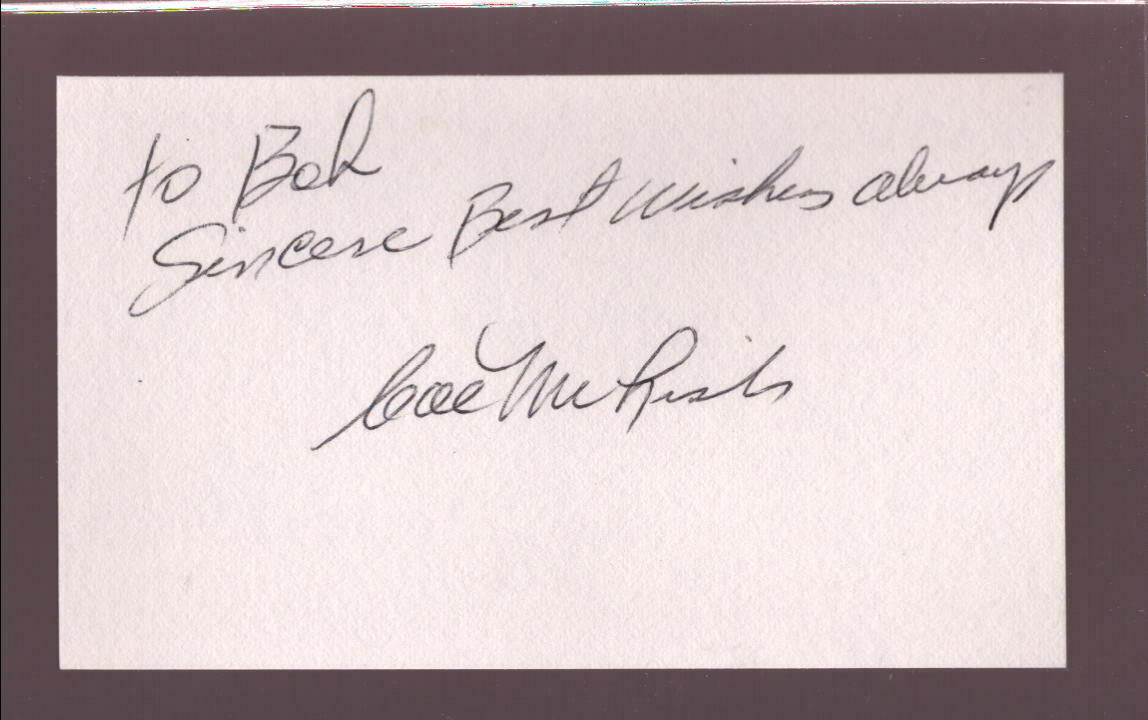 to Bob
Sincere Best Wishes always
Cal McLish